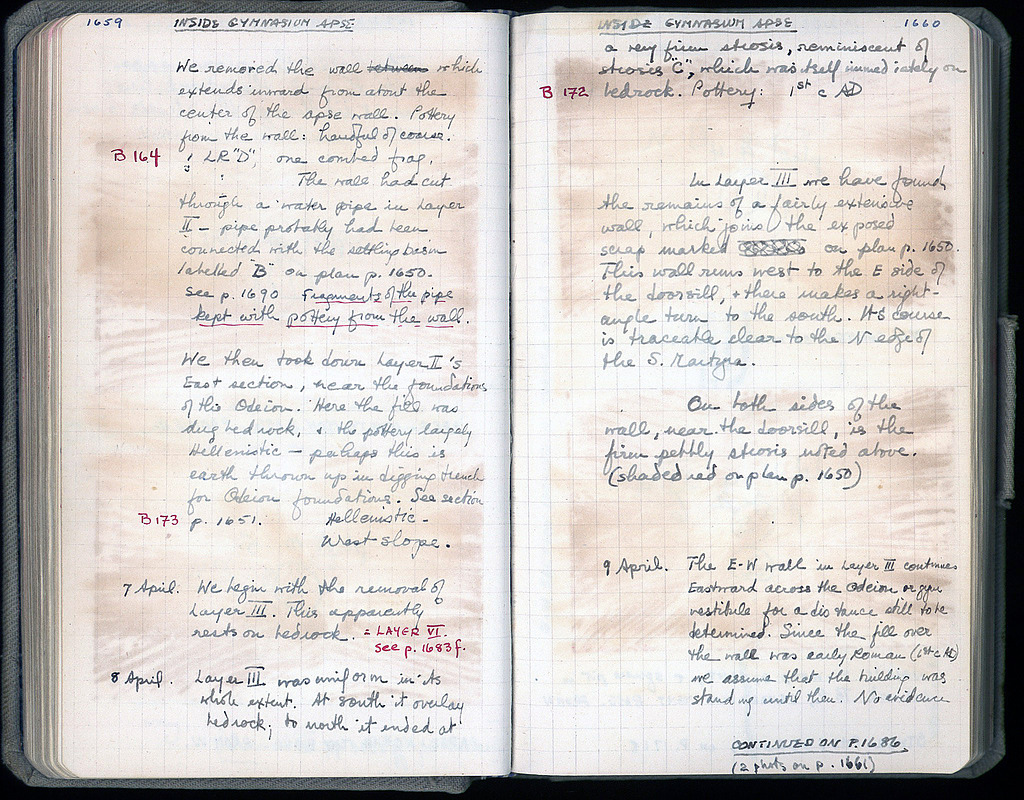 1659 INSIDE GYMNASIUM APSE
We removed the wall between which
extends inward from about the
center of the apse wall. Pottery
from the wall: handful of coarse.
B 164 ; LR "D", one combed frag.
The wall had cut
through a water pipe in Layer
II – pipe probably had been
connected with the settling basin
labelled "B" on plan p. 1650.
See p. 1690 Fragments of the pipe
kept with pottery from the wall.
We then took down Layer II's
East section, near the foundations
of the Odeion. Here the fill was
dug bedrock, & the pottery largely
Hellenistic – perhaps this is
earth thrown up in digging trench
for Odeion foundations. See section
B 173 p. 1651. Hellenistic –
West slope.
7 April. We begin with the removal of
Layer III. This apparently
rests on bedrock. = LAYER VI.
See p. 1683 f.
8 April. Layer III was uniform in its
whole extent. At south it overlay
bedrock; to north it ended at
INSIDE GYMNASIUM APSE 1660
a very firm strosis, reminiscent of
strosis "C", which was itself immediately on
B 172 bedrock. Pottery: 1st c AD
In Layer III we have found
the remains of a fairly extensive
wall, which joins the exposed
scrap marked on plan p. 1650.
This wall runs west to the E side of
the doorsill, & there makes a right-
angle turn to the south. Its course
is traceable clear to the N edge of
the S. Martyra.
On both sides of the
wall, near the doorsill, is the
firm pebbly strosis noted above.
(shaded red on plan p. 1650)
9 April. The E-W wall in Layer III continues
Eastward across the Odeion or gym
vestibule for a distance still to be
determined. Since the fill over
the wall was early Roman (1st c AD)
we assume that the building was
standing until then. No evidence
CONTINUED ON P. 1686.
(2 photos on p. 1661)